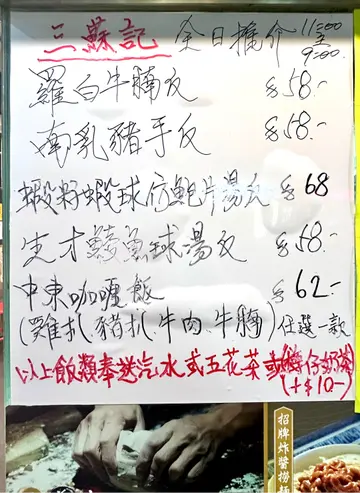 三蘇記 全日推介 11:00至9:00
羅白牛腩反 $58.-
南乳豬手反 $58.-
蝦籽蝦球仿鮑片湯反 $68
生才鯪魚球湯反 $58.-
中東咖喱飯 $62.-
(雞扒.豬扒.牛肉.牛腩)任選一款
以上飯類奉送汽水或五花茶或樽仔奶茶
(+$10-)
招牌炸醬撈麵